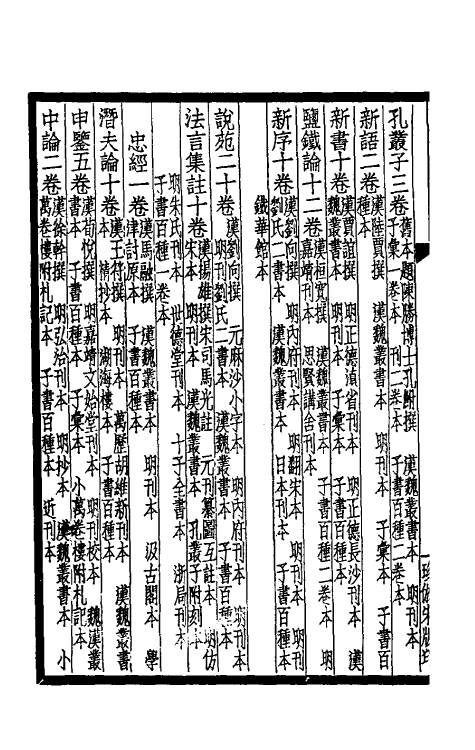 孔叢子三卷
舊本題陳勝博士孔鮒撰 漢魏叢書本 明刊本
子彙一卷本 明刊二卷本 子書百種二卷本
新語二卷
漢陸賈撰 漢魏叢書本 明刊本 子彙本 子書百
種本
新書十卷
漢賈誼撰 明正德滇省刊本 明正德長沙刊本 漢
魏叢書本 明刊本 子彙本 子書百種本
鹽鐵論十二卷
漢桓寬撰 漢魏叢書本 子書百種二卷本 明
嘉靖刊本 思賢講舍刊本
新序十卷
漢劉向撰 明內府刊本 明翻宋本 明刊本 明刊
劉氏二書本 漢魏叢書本 日本刊本 子書百種本
鐵華館本
說苑二十卷
漢劉向撰 元麻沙小字本 明內府刊本 明刊本
明刊劉氏二書本 漢魏叢書本 子書百種本
法言集註十卷
漢揚雄撰宋司馬光註 元刊纂圖互註本 明仿
宋本 明刊本 漢魏叢書本 孔叢子附刻本
明朱氏刊本 世德堂刊本 十子全書本 浙局刊本
子書百種一卷本
忠經一卷
漢馬融撰 漢魏叢書本 明刊本 汲古閣本 學
津討原本 子書百種本
潛夫論十卷
漢王符撰 明刊本 萬歷胡維新刊本 漢魏叢書
本 精抄本 湖海樓本 子書百種本
申鑒五卷
漢荀悅撰 明嘉靖文始堂刊本 明刊校本 魏漢叢
書本 子書百種本 子彙本 小萬卷樓附札記本
中論二卷
漢徐幹撰 明弘治刊本 明抄本 漢魏叢書本 小
萬卷樓附札記本 子書百種本 近刊本